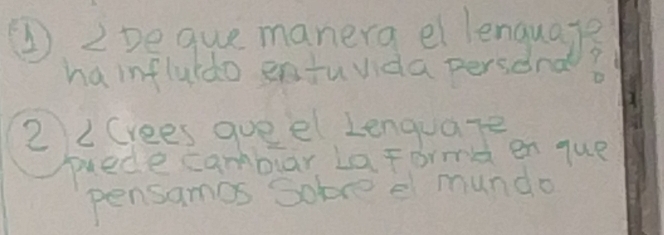 ① ¿De que manera el lenguaje
ha influido en tu vida personal?
2 ¿Crees que el Lenguaje
puede cambiar La Forma en que
pensamos Sobre el mundo